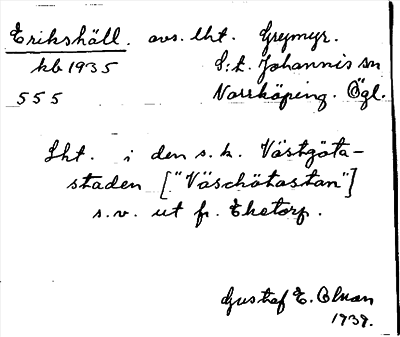 Erikshäll. avs. lht. Grymyr.
kb 1935 S:t. Johannis sn
555 Norrköping. Ögl.
Lht. i den s.k. Västgöta-
staden ["Väschötastan"]
s.v. ut fr. Eketorp.
Gustaf E. Olsson
1939.